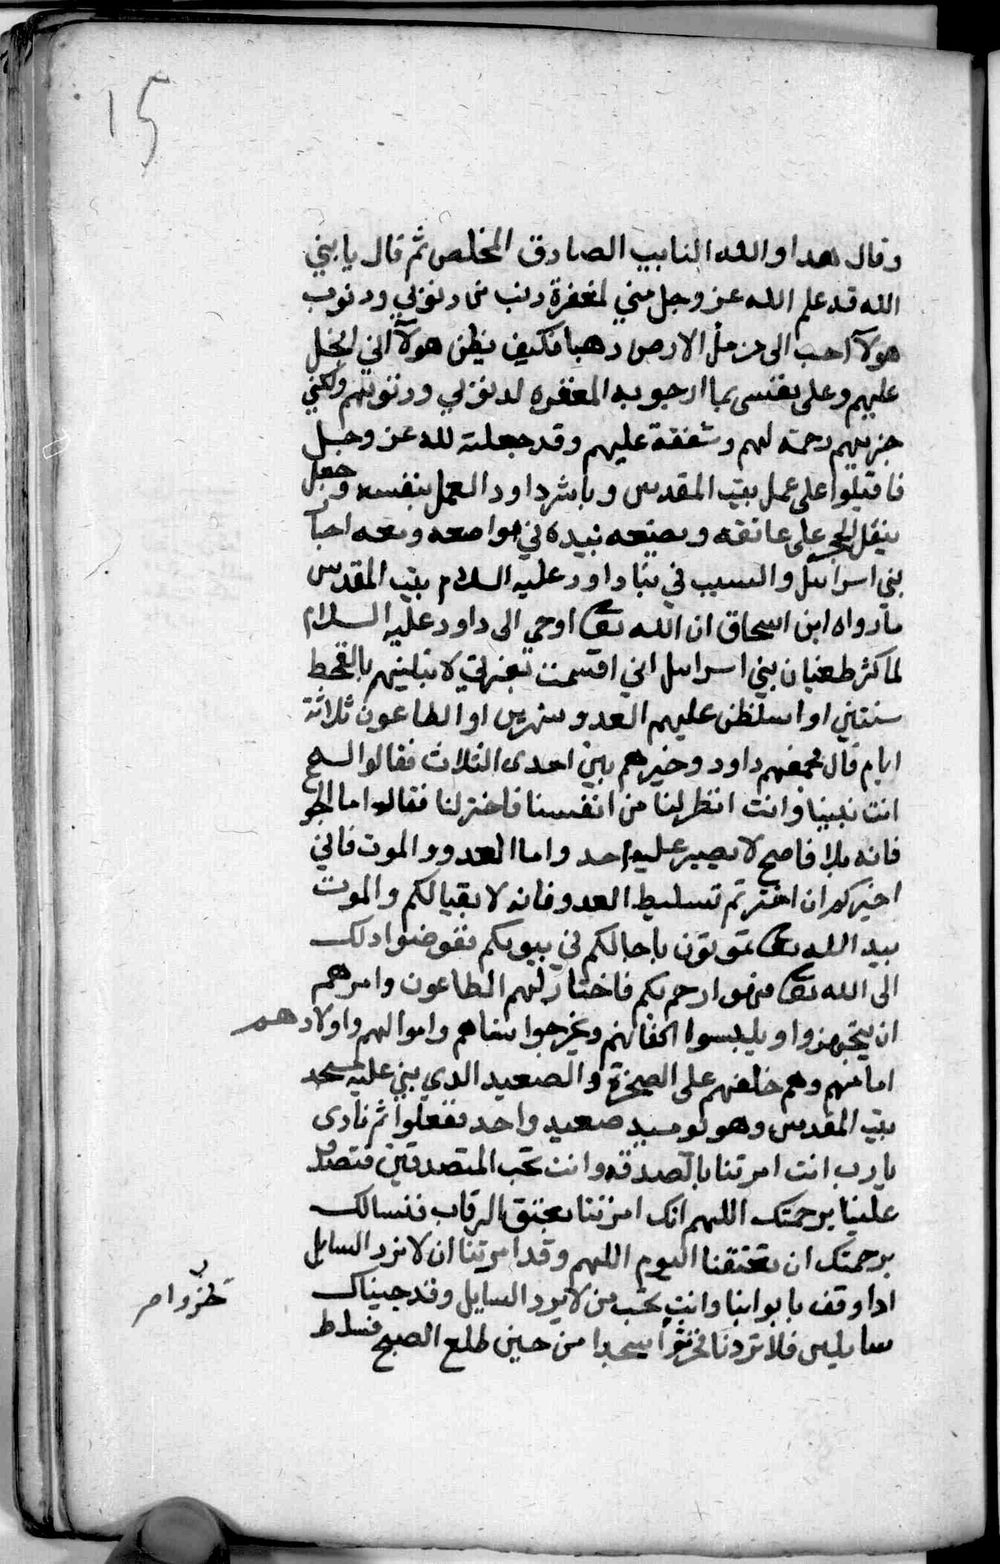 15
وقال هدا والله التايب الصادق المخلص ثم قال يا بني
الله قد علم الله عز وجل مني لمغفرة دنب من دنوبي ودنوب
هولآ احب الى من مل الارص دهبا فكيف يظن هولآ اني ابخل
عليهم وعلى نفسى بما ارجو به المغفره لدنوبي ودنوبهم ولكني
جربتهم رحمة لهم وشفقة عليهم وقد جعلته لله عز وجل
فاقبلوا على عمل بيت المقدس وباشر داود العمل بنفسه وجعل
ينقل الحجر على عاتقه ويصنعه بيده في مواضعه ومعه احبآ
بني اسراىيل والسبب في بنا داود عليه السلام بيت المقدس
مارواه ابن اسحاق ان الله تعا اوحي الى داود عليه السلام
لما كثر طغيان بني اسراىيل اني اقسمت بعزتي لابتلينهم بالقحط
سنتين او اسلطن عليهم العدو شهرين او الطاعون ثلاثة
ايام قال فجمعهم داود وخيرهم بين احدى الثلاث فقالوا له
انت نبينا وانت انظر لنا من انفسنا فاختر لنا فقال اما الجو
فانه بلا فاصح لا يصبر عليه احد واما العدو والموت فاني
اخيركم ان اخترتم تسليط العدو فانه لا بقيا لكم والموت
بيد الله تعا تموتون باجالكم في بيوتكم ففوضوا دلك
الى الله تعا فهو ارحم بكم فاختار لهم الطاعون وامرهم
ان يتجهزوا ويلبسوا اكفانهم ويخرجوا نساهم واموالهم واولادهم
امامهم وهم خلفهم على الصخرة والصعيد الدي بني عليه مسجد
بيت المقدس وهو يوميد صعيد واحد ففعلوا ثم نادى
يارب انت امرتنا بالصدقه وانت تحب المتصدقين فتصدق
علينا برحمتك اللهم انك امرتنا بعتق الرقاب فنسالك
برحمتك ان تعتقنا اليوم اللهم وقد امرتنا ان لا نرد السايل
ادا وقف بابوابنا وانت تحب من لا يرد السايل وقد جيناك
سايلين فلا تردنا فخروا سجدا من حين طلع الصبح فسلط
تخروا